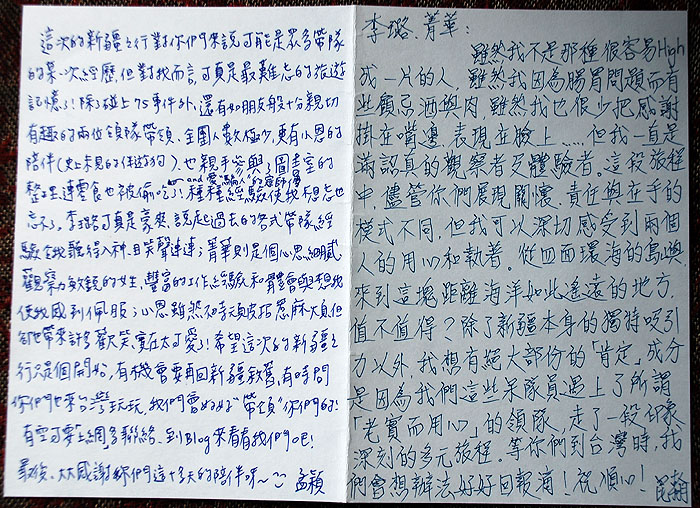 這次的新疆之行對你們來說可能是眾多帶隊
的某一次經歷,但對我而言,可真是最難忘的旅遊
記憶了!除了碰上75事件外,還有如朋友般十分親切
有趣的兩位領隊帶領、全團人數極少,更有小恩的
陪伴(史上未見的伴遊的)、也親手參與了圖書室的
整理,連零食也被偷吃!種種經驗使我想忘也
忘不了。李璐可真是豪爽,說起過去的各式帶隊經
驗令我聽得入神,且笑聲連連;菁華則是個心思細膩
觀察力敏銳的女生,豐富的工作經驗和體會與想我
使我感到佩服;小恩雖然不時頑皮搗蛋麻大包,但
卻也帶來許多歡笑,實在太可愛了!希望這次的新疆之
行只是個開始,有機會要再回新疆敘舊,有時間
你們也來台灣玩玩,我們會好好"帶領"你們的!
有空可要上網多聯絡、到Blog來看看我們吧!
最後,大大感謝妳們這十多天的陪伴咪~ 孟穎
李璐、菁華:
雖然我不是那種很容易High
成一片的人,雖然我因為腸胃問題而有
些顧忌酒與肉,雖然我也很少把感謝
掛在嘴邊、表現在臉上……但我一直是
滿認真的觀察者及體驗者。這段旅程
中,儘管你們展現關懷、責任與在乎的
模式不同,但我可以深切感受到兩個
人的用心和執著。從四面環海的島嶼
來到這塊距離海洋如此遙遠的地方,
值不值得?除了新疆本身的獨特吸引
力以外,我想有絕大部份的「肯定」成分
是因為我們這些呆隊員遇上了所謂
「老實而用心」的領隊,走了一段印象
深刻的多元旅程。等你們到台灣時,我
們會想辦法好好回報滴!祝順心!